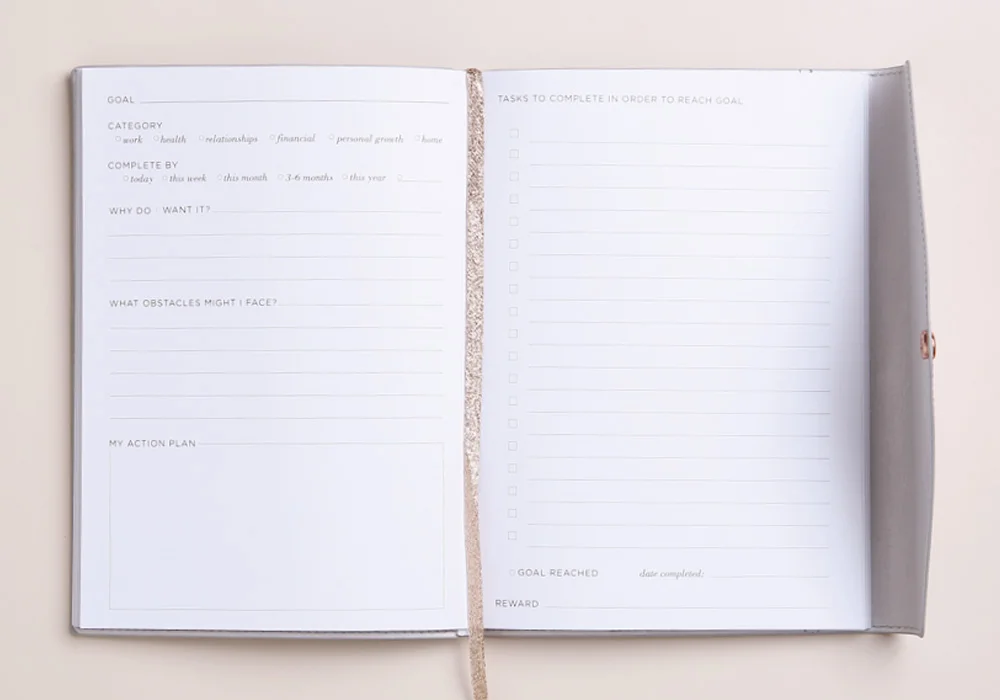 GOAL
CATEGORY
work health relationships financial personal growth home
COMPLETE BY
today this week this month 3-6 months this year
WHY DO I WANT IT?
WHAT OBSTACLES MIGHT I FACE?
MY ACTION PLAN
TASKS TO COMPLETE IN ORDER TO REACH GOAL
GOAL REACHED date completed:
REWARD